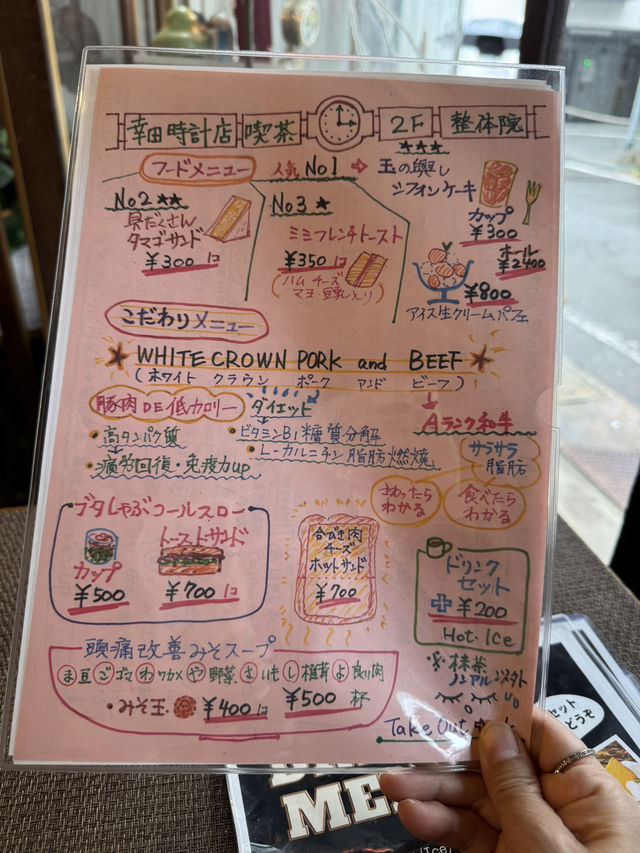 幸田時計店 喫茶 2F 整体院
★★★
フードメニュー 人気 No1 → 玉の輿し
シフォンケーキ
カップ
¥300
ホール
¥2400
No2 ★★
具だくさん
タマゴサンド
¥300 1コ
No3 ★
ミミフレンチトースト
¥350 1コ
(ハム チーズ
マヨ・豆乳入り)
¥800
アイス生クリームパフェ
こだわりメニュー
WHITE CROWN PORK and BEEF
(ホワイト クラウン ポーク アンド ビーフ)
豚肉DE低カロリー ダイエット
Aランク和牛
・高タンパク質
・ビタミンB1糖質分解
・L-カルニチン脂肪燃焼
・疲労回復・免疫力up
サラサラ
脂肪
さわったら
わかる
食べたら
わかる
ブタしゃぶコールスロー
カップ
¥500
トーストサンド
¥700 1コ
合びき肉
チーズ
ホットサンド
¥700
ドリンク
セット
+ ¥200
Hot・Ice
頭痛改善みそスープ
ま豆 ごゴマ わワカメ や野菜 さいも し椎茸 よ良い肉
・みそ玉・ ¥400 1コ ¥500 杯
※抹茶
Take Out
セット
どうぞ